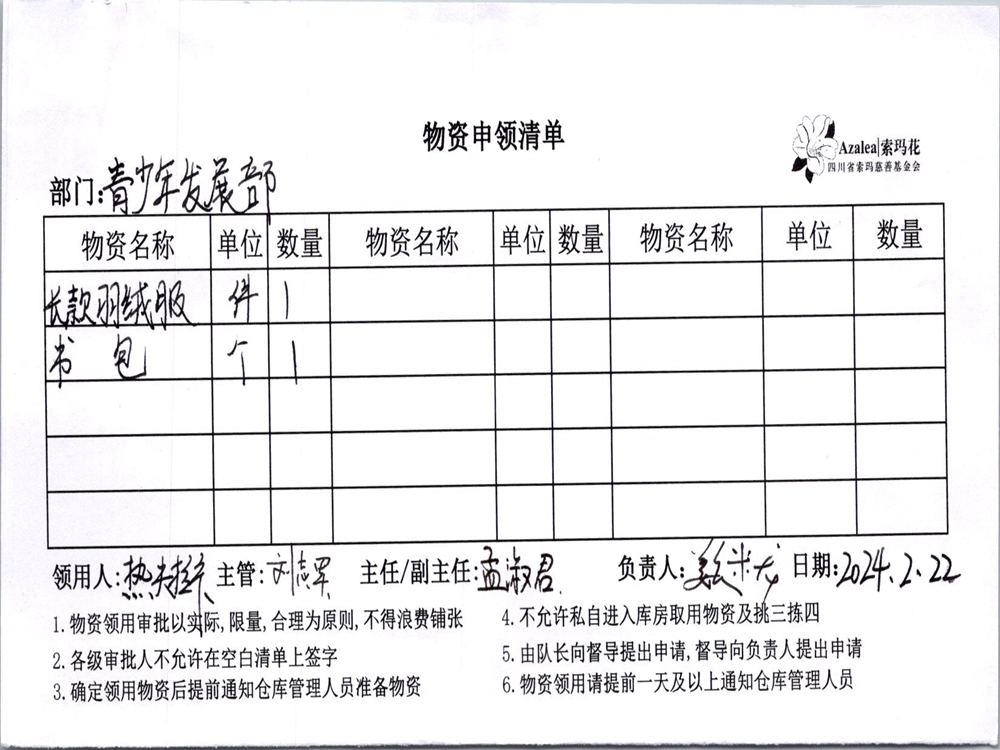 物资申领清单
Azalea|索玛花
四川省索玛慈善基金会
部门:青少年发展部
物资名称 单位 数量 物资名称 单位 数量 物资名称 单位 数量
长款羽绒服 件 1
书包 个 1
领用人: 主管:刘志军 主任/副主任:孟淑君 负责人: 日期:2024.2.22
1.物资领用审批以实际,限量,合理为原则,不得浪费铺张
2.各级审批人不允许在空白清单上签字
3.确定领用物资后提前通知仓库管理人员准备物资
4.不允许私自进入库房取用物资及挑三拣四
5.由队长向督导提出申请,督导向负责人提出申请
6.物资领用请提前一天及以上通知仓库管理人员